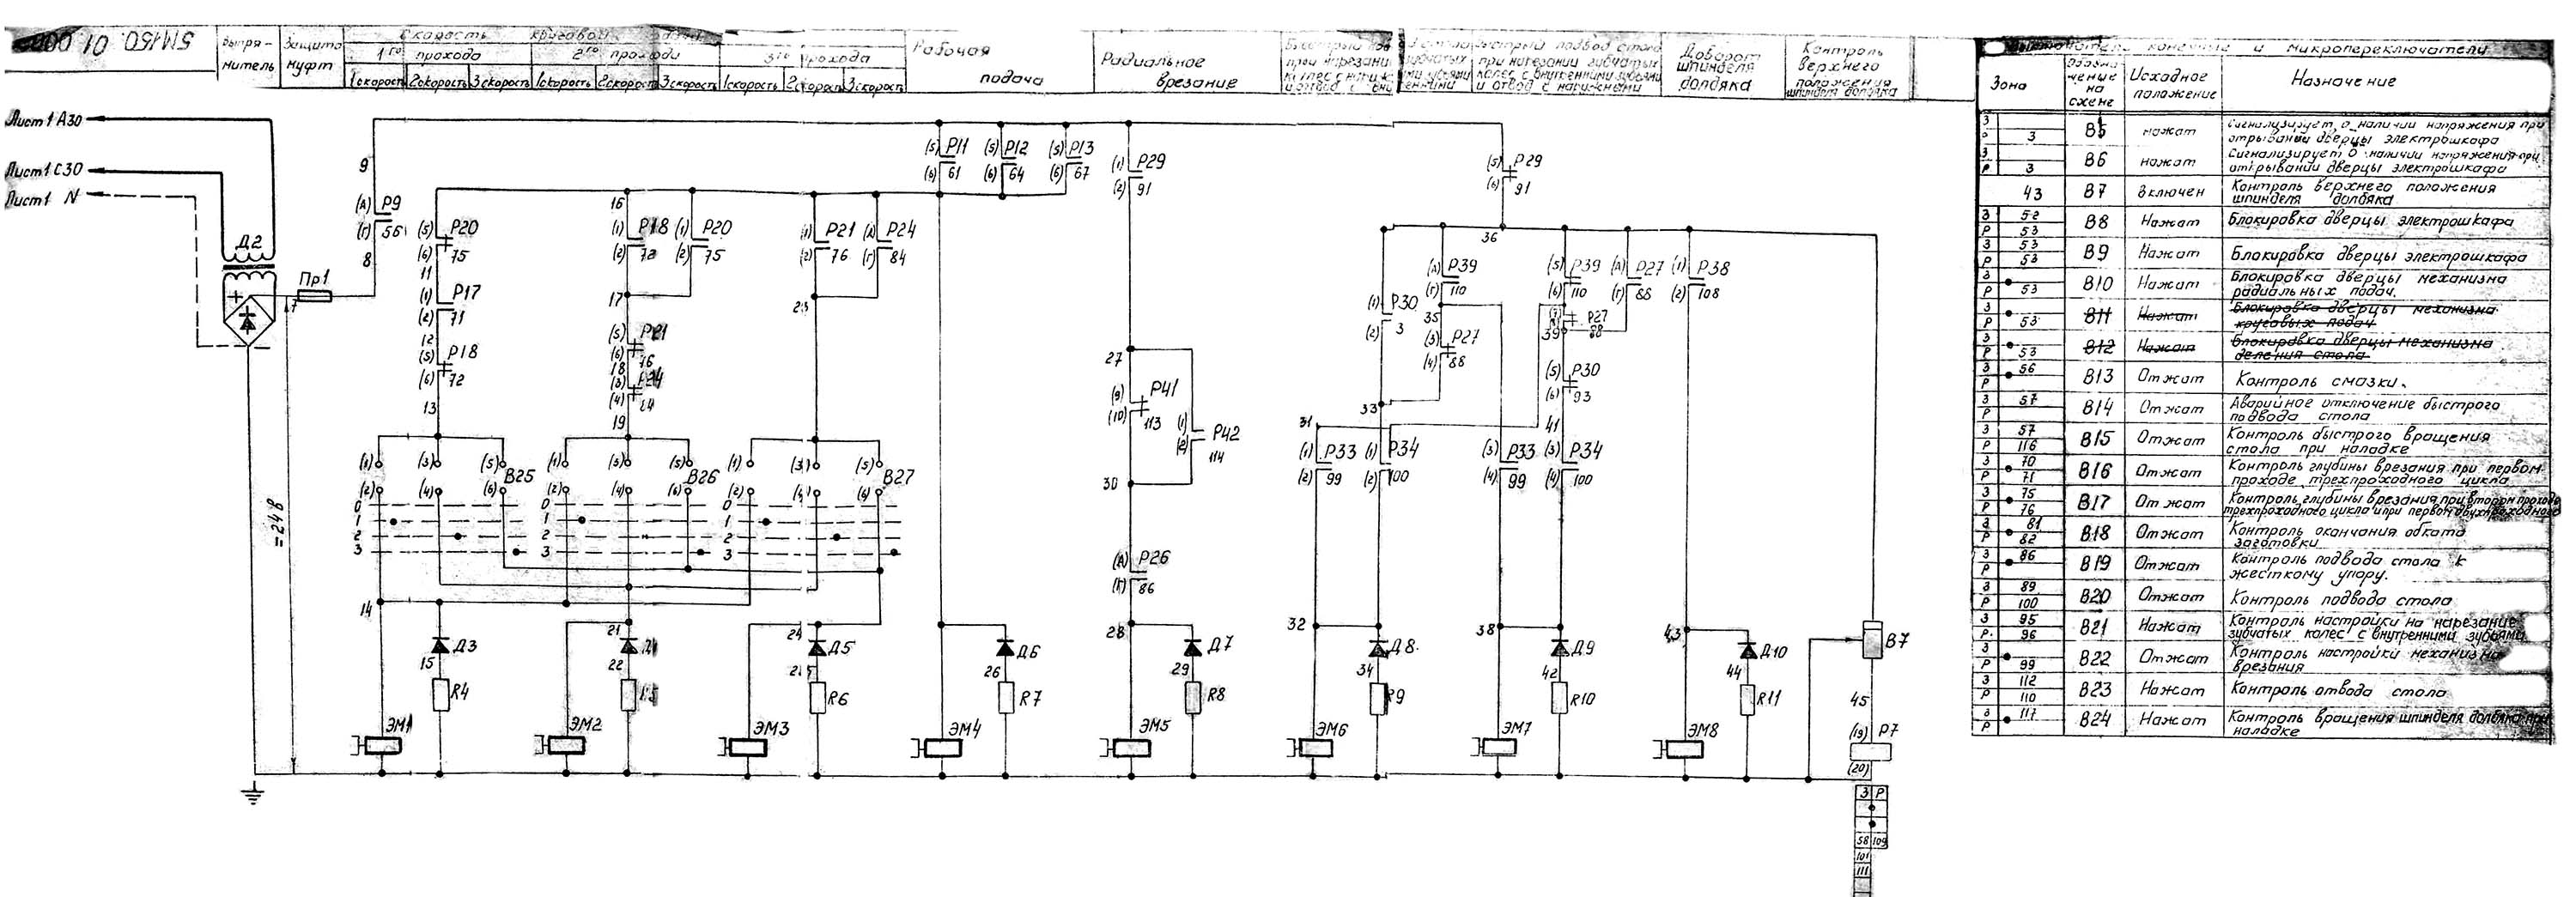 5М150. 01. 000
Выпря-
митель
Защита
муфт
Скорость круговой подачи
1го прохода
2го прохода
3го прохода
1скорость 2скорость 3скорость 1скорость 2скорость 3скорость 1скорость 2скорость 3скорость
Рабочая
подача
Радиальное
врезание
Быстрый подвод стола
при нарезании зубчатых
колес с внутренними зубьями
и отвод с наружными
Доворот
шпинделя
долбяка
Контроль
верхнего
положения
шпинделя долбяка
Лист1 А30
Лист1 С30
Лист1 N
Д2
Пр1
7
=24В
9
(А) Р9
(Г) 56
8
(5) Р20
(6) 75
11
(1) Р17
(2) 71
12
(5) Р18
(6) 72
13
16
(1) Р18
(2) 72
(1) Р20
(2) 75
17
(5) Р21
(6) 76
18
(3) Р24
(4) 84
19
(1) Р21
(2) 76
(А) Р24
(Г) 84
23
(5) Р11
(6) 61
(5) Р12
(6) 64
(5) Р13
(6) 67
(1) Р29
(2) 91
27
(9) Р41
(10) 113
(1) Р42
(2) 114
30
(А) Р26
(Г) 86
28
(5) Р29
(6) 91
36
(1) Р30
(2) 3
(А) Р39
(Г) 110
35
(3) Р27
(4) 88
33
(5) Р39
(6) 110
Р27
88
39
(А) Р27
(Г) 88
(5) Р30
(6) 93
41
(1) Р38
(2) 108
31
(1) Р33
(2) 99
(1) Р34
(2) 100
(3) Р33
(4) 99
(3) Р34
(4) 100
(1) (3) (5) В25
(2) (4) (6)
(1) (3) (5) В26
(2) (4) (6)
(1) (3) (5) В27
(2) (4) (6)
0 0 0
1 1 1
2 2 2
3 3 3
14
21
24
32
38
43
Д3
15
R4
Д4
22
R5
Д5
25
R6
Д6
26
R7
Д7
29
R8
Д8
34
R9
Д9
42
R10
Д10
44
R11
ЭМ1
ЭМ2
ЭМ3
ЭМ4
ЭМ5
ЭМ6
ЭМ7
ЭМ8
В7
45
(19) Р7
(20)
З Р
58 109
101
111
Выключатели конечные и микропереключатели
Зона
Обозна-
чение
на
схеме
Исходное
положение
Назначение
З Р 3 В5 нажат Сигнализирует о наличии напряжения при
отрывании дверцы электрошкафа
З Р 3 В6 нажат Сигнализирует о наличии напряжения при
открывании дверцы электрошкафа
43 В7 включен Контроль верхнего положения
шпинделя долбяка
З 52 Р 53 В8 Нажат Блокировка дверцы электрошкафа
З 53 Р 53 В9 Нажат Блокировка дверцы электрошкафа
З Р 53 В10 Нажат Блокировка дверцы механизма
радиальных подач.
З Р 53 В11 Нажат Блокировка дверцы механизма
круговых подач
З Р 53 В12 Нажат Блокировка дверцы механизма
деления стола
З 56 Р В13 Отжат Контроль смазки.
З 57 Р В14 Отжат Аварийное отключение быстрого
подвода стола
З 57 Р 116 В15 Отжат Контроль быстрого вращения
стола при наладке
З 70 Р 71 В16 Отжат Контроль глубины врезания при первом
проходе трехпроходного цикла
З 75 Р 76 В17 Отжат Контроль глубины врезания при втором проходе
трехпроходного цикла и при первом двухпроходного
З 81 Р 82 В18 Отжат Контроль окончания обката
заготовки
З 86 Р В19 Отжат Контроль подвода стола к
жесткому упору.
З 89 Р 100 В20 Отжат Контроль подвода стола
З 95 Р. 96 В21 Нажат Контроль настройки на нарезание
зубчатых колес с внутренними зубьями
З Р 99 В22 Отжат Контроль настройки механизма
врезания
З 112 Р 110 В23 Нажат Контроль отвода стола
З 117 Р В24 Нажат Контроль вращения шпинделя долбяка при
наладке